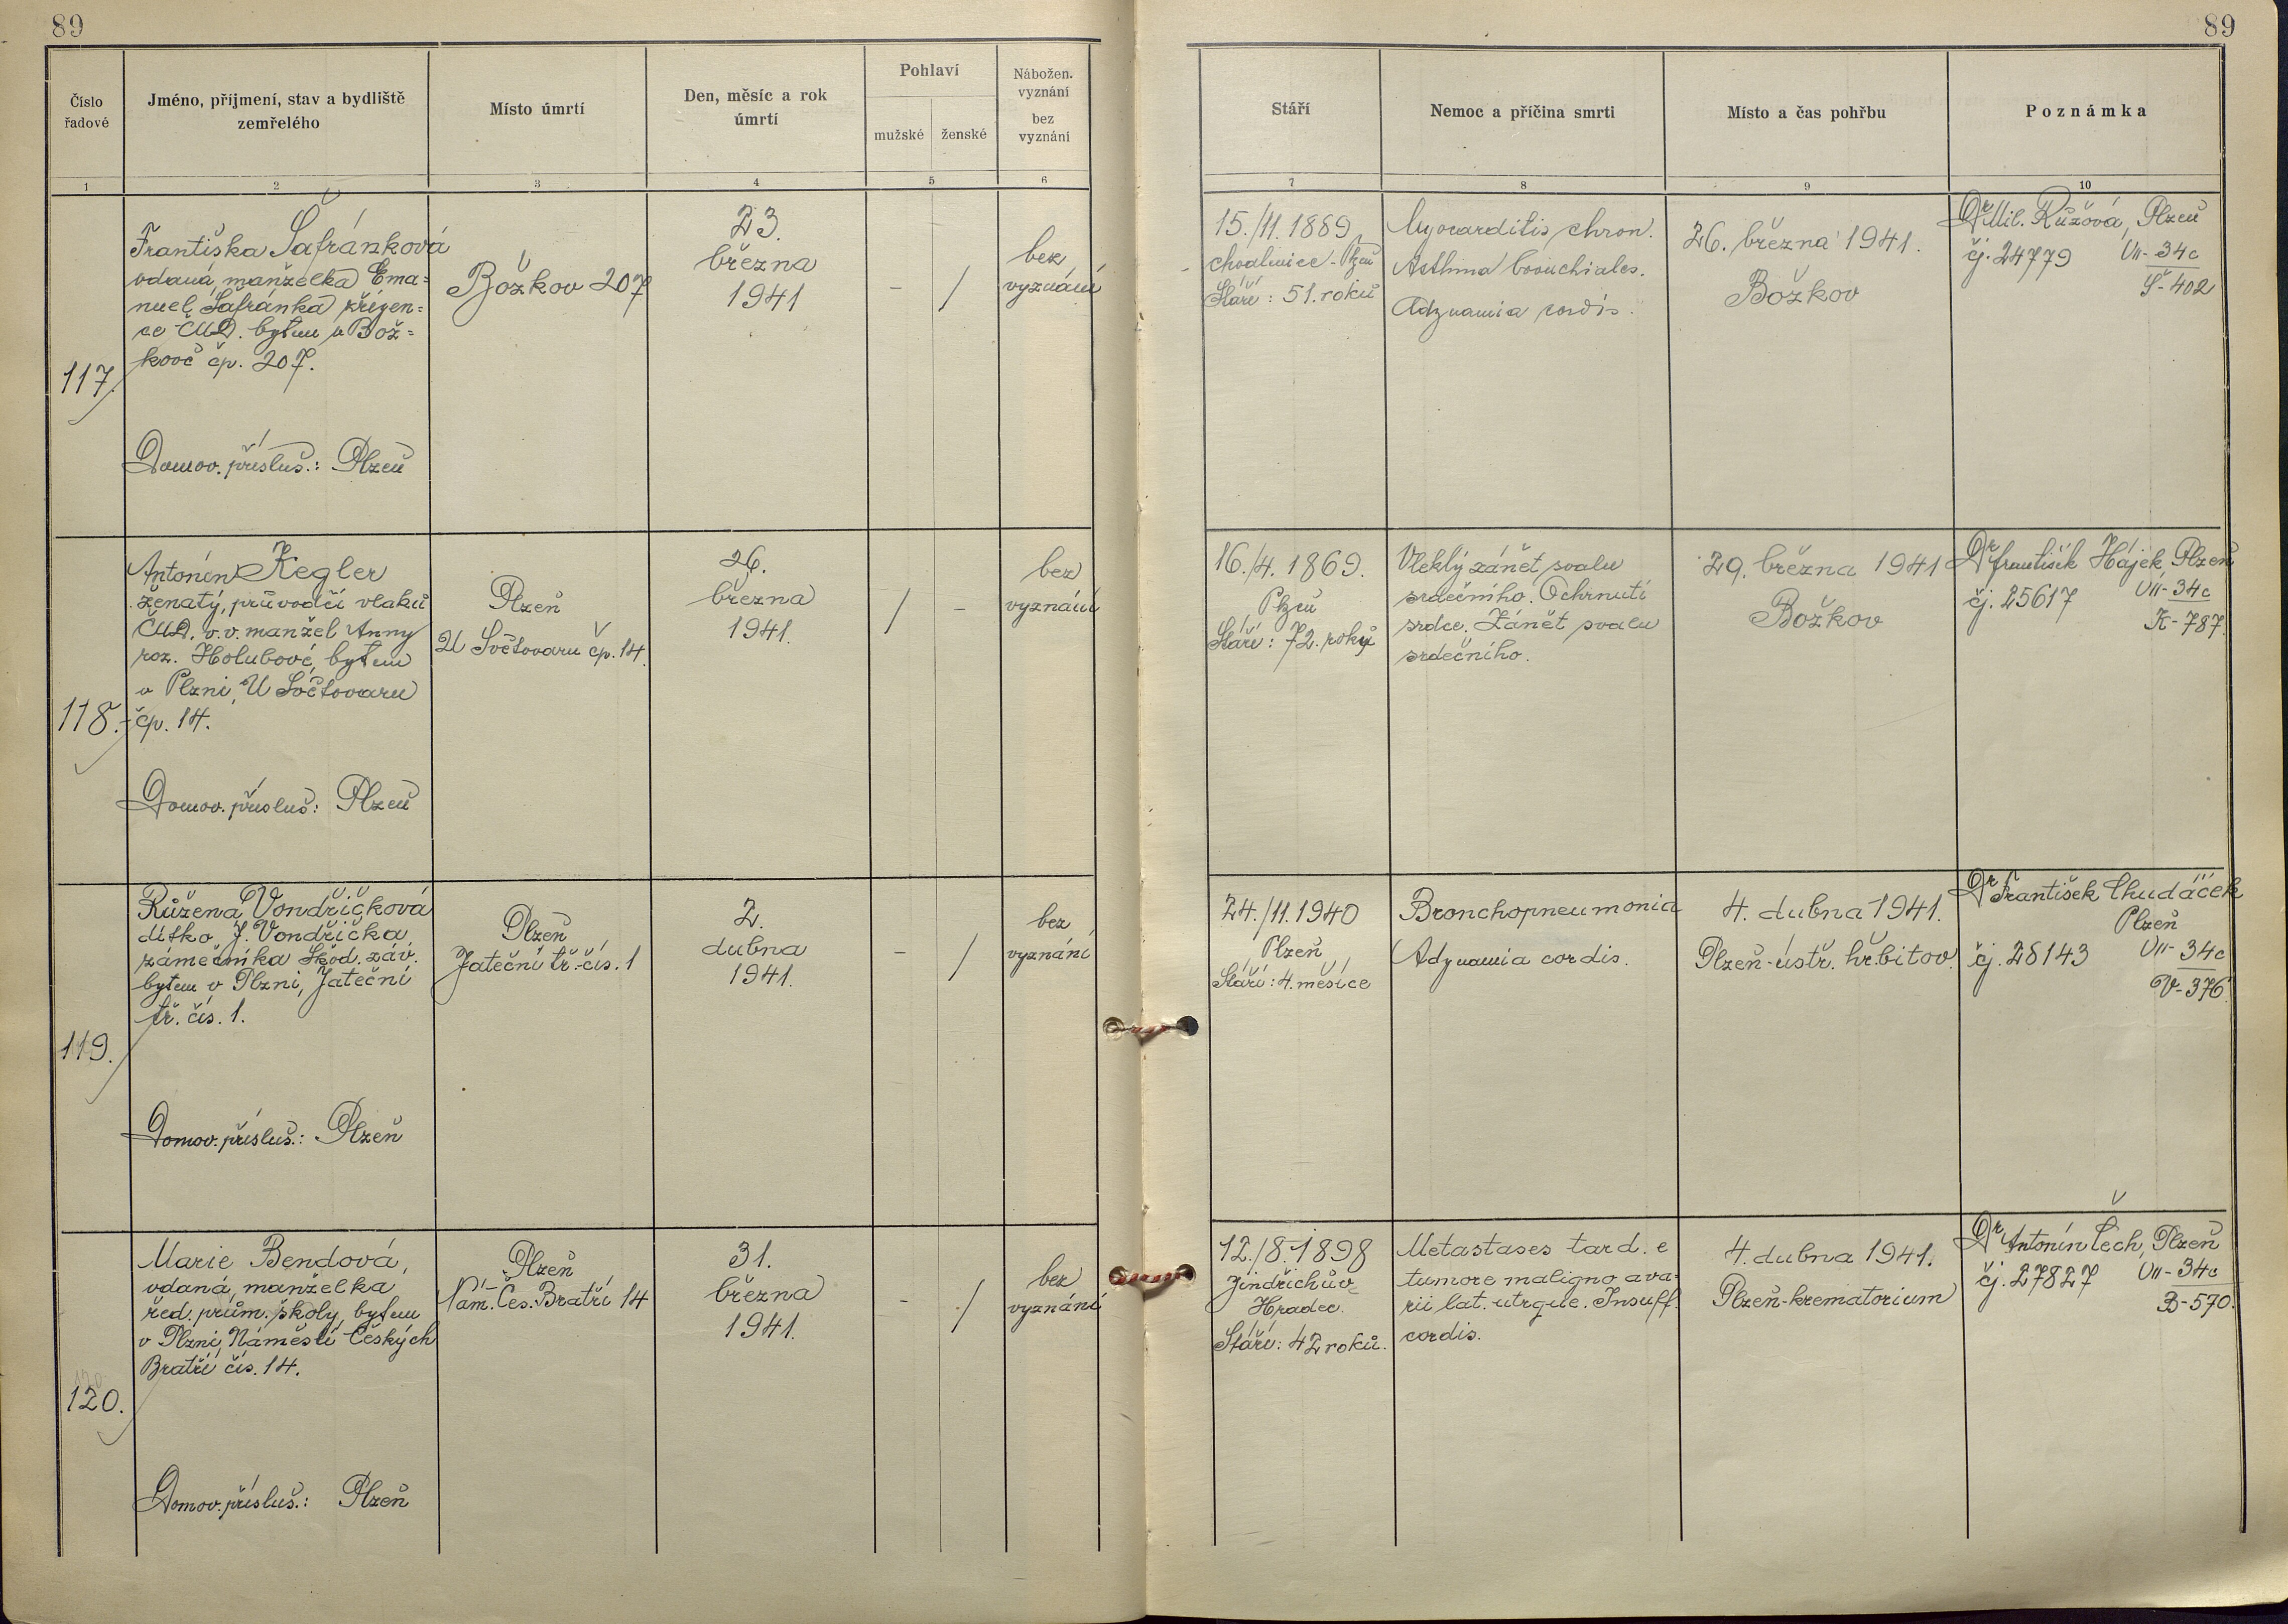 89
89
Číslo
řadové
Jméno, příjmení, stav a bydliště
zemřelého
Místo úmrtí
Den, měsíc a rok
úmrtí
Pohlaví
mužské
ženské
Nábožen.
vyznání
bez
vyznání
Stáří
Nemoc a příčina smrti
Místo a čas pohřbu
Poznámka
1
2
3
4
5
6
7
8
9
10
117.
Františka Šafránková
vdaná, manželka Ema-
nuel Šafránka zřízen-
ce ČMD. bytem v Bož-
kově čp. 207.
Domov. přísluš.: Plzeň
Božkov 207
23.
března
1941
-
/
bez
vyznání
15./11.1889
Chválenice - Plzeň
Stáří: 51. roků
Myocarditis chron.
Asthma bronchiales.
Adynamia cordis.
26. března 1941.
Božkov
Dr Mil. Růžová, Plzeň
čj. 24779
VII-34c
Š-402
118.
Antonín Kegler
ženatý, průvodčí vlaků
ČMD. v.v. manžel Anny
roz. Holubové, bytem
v Plzni, U Světovaru
čp. 14.
Domov. přísluš.: Plzeň
Plzeň
U Světovaru čp. 14.
26.
března
1941.
/
-
bez
vyznání
16./4. 1869.
Plzeň
Stáří: 72. roky
Vleklý zánět svalu
srdečního. Ochrnutí
srdce. Zánět svalu
srdečního.
29. března 1941
Božkov
Dr František Hájek, Plzeň
čj. 25617
VII-34c
K-787.
119.
Růžena Vondřičková
dítko J. Vondřička
zámečníka Škod. záv.
bytem v Plzni, Jateční
tř. čís. 1.
Domov. přísluš.: Plzeň
Plzeň
Jateční tř. čís. 1
2.
dubna
1941.
-
/
bez
vyznání
24./11.1940
Plzeň
Stáří: 4. měsíce
Bronchopneumonia
Adynamia cordis.
4. dubna 1941.
Plzeň-ústř. hřbitov.
Dr František Chudáček
Plzeň
čj. 28143
VII-34c
V-376.
120.
Marie Bendová,
vdaná, manželka
řed. prům. školy, bytem
v Plzni, Náměstí Českých
Bratří čís. 14.
Domov. přísluš.: Plzeň
Plzeň
Nám. Čes. Bratří 14
31.
března
1941.
-
/
bez
vyznání
12./8.1898
Jindřichův
Hradec.
Stáří: 42 roků.
Metastases tard. e
tumore maligno ova-
rii lat. utrque. Insuff.
cordis.
4. dubna 1941.
Plzeň-krematorium
Dr Antonín Čech, Plzeň
čj. 27827
VII-34c
B-570.